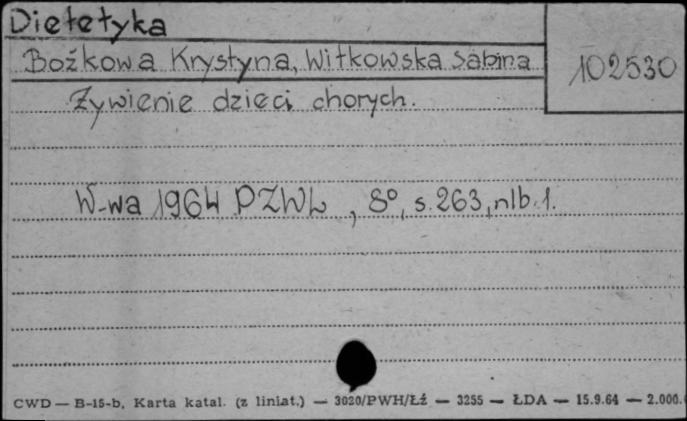 Dietetyka
102530
Bożkowa Krystyna, Witkowska Sabina
Żywienie dzieci chorych.
W-wa 1964 PZWL, 8°, s. 263, nlb. 1.
CWD — B-15-b, Karta katal. (z liniat.) — 3020/PWH/Łź — 3255 — ŁDA — 15.9.64 — 2.000.